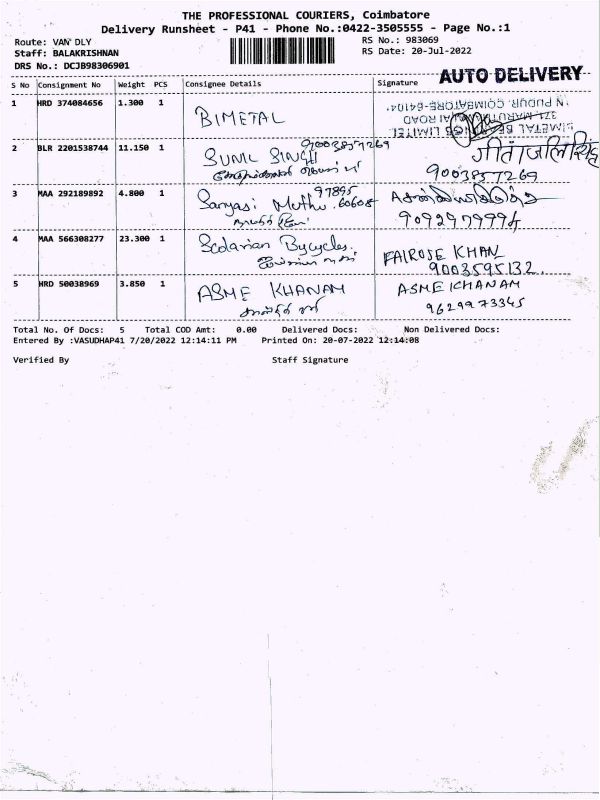 THE PROFESSIONAL COURIERS, Coimbatore
Delivery Runsheet - P41 - Phone No.:0422-3505555 - Page No.:1
Route: VAN DLY
RS No.: 983069
Staff: BALAKRISHNAN
RS Date: 20-Jul-2022
DRS No.: DCJB98306901
AUTO DELIVERY
S No Consignment No Weight PCS Consignee Details Signature
1 HRD 374084656 1.300 1 BIMETAL
BIMETAL BEARINGS LIMITED
371, MARUTHAMALAI ROAD
N PUDUR, COIMBATORE-64104
2 BLR 2201538744 11.150 1 SUNIL SINGH 9003857269 गीतांजलि सिंह
9003857269
3 MAA 292189892 4.800 1 Sanyasi Muthu 97895 60608
9092979994
4 MAA 566308277 23.300 1 Scdarian Bycycles. FAIROSE KHAN
9003595132.
5 HRD 50038969 3.850 1 ASME KHANAM ASME KHANAM
9629973345
Total No. Of Docs: 5 Total COD Amt: 0.00 Delivered Docs: Non Delivered Docs:
Entered By :VASUDHAP41 7/20/2022 12:14:11 PM Printed On: 20-07-2022 12:14:08
Verified By Staff Signature